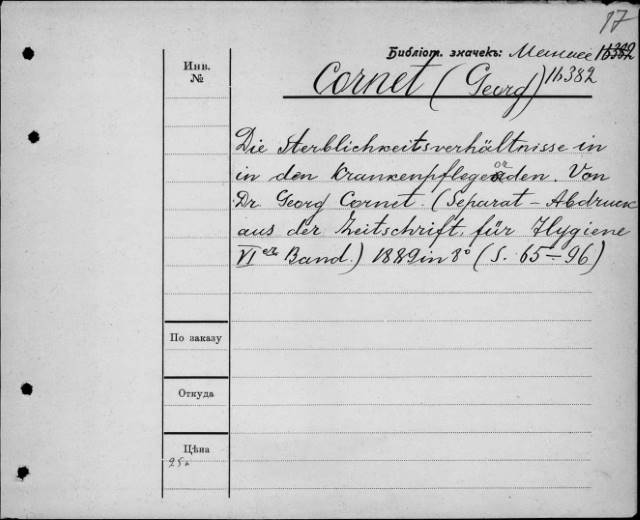 17
Библіот. значекъ:
Инв.
№
Cornet (Georg) 16382
Die Sterblichkeitsverhältnisse in
in den Krankenpflegeorden. Von
Dr. Georg Cornet. (Separat-Abdruck
aus der Zeitschrift, für Hygiene
VI er Band.) 1889 in 8° (S. 65-96)
По заказу
Откуда
Цѣна
25